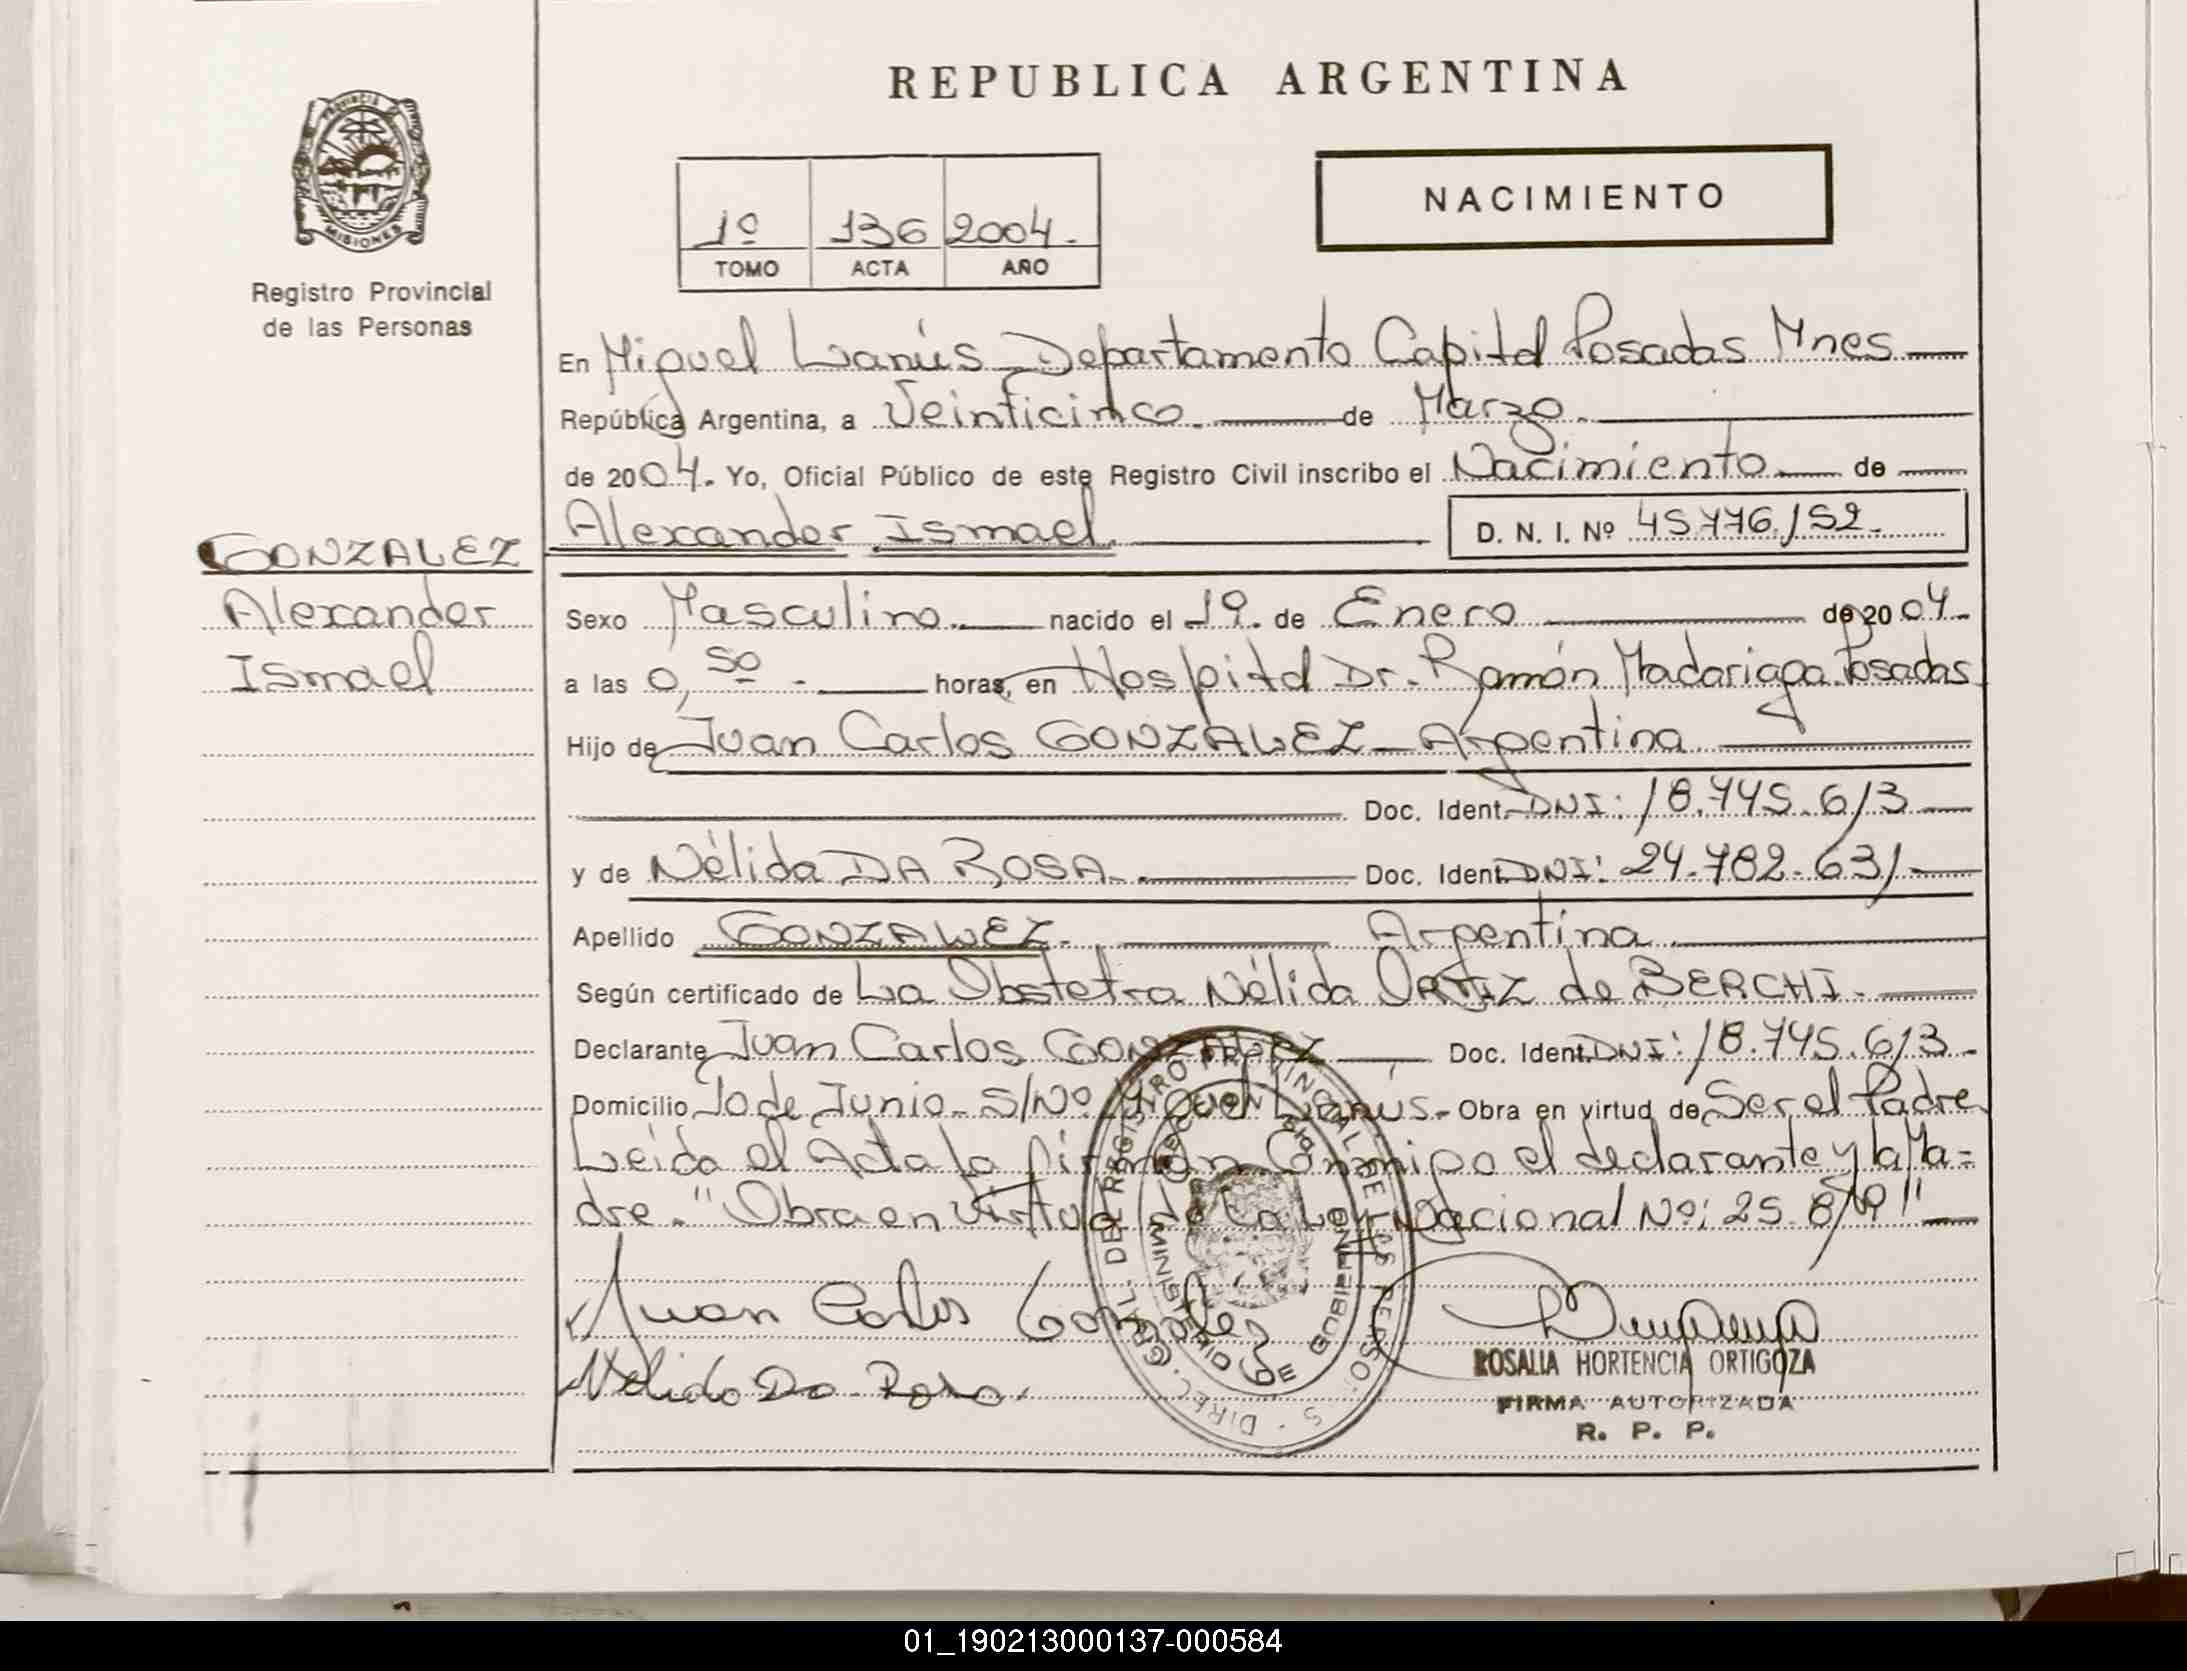 REPUBLICA ARGENTINA
PROVINCIA DE
MISIONES
Registro Provincial
de las Personas
1º 136 2004.
TOMO ACTA AÑO
NACIMIENTO
En Miguel Lanús Departamento Capital Posadas Mnes
República Argentina, a Veinticinco. de Marzo.
de 2004. Yo, Oficial Público de este Registro Civil inscribo el Nacimiento de
Alexander Ismael. D. N. I. Nº 45.776.152.
GONZALEZ
Alexander
Ismael
Sexo Masculino. nacido el 19. de Enero de 2004.
a las 0,50. horas, en Hospital Dr. Ramón Madariaga. Posadas
Hijo de Juan Carlos GONZALEZ - Argentina
Doc. Ident. DNI: 18.745.613
y de Nélida DA ROSA. Doc. Ident. DNI: 24.782.631
Apellido GONZALEZ. Argentina
Según certificado de La Obstetra Nélida ORTIZ de BERCHI.
Declarante Juan Carlos GONZALEZ Doc. Ident. DNI: 18.745.613.
Domicilio 10 de Junio. S/Nº. Miguel Lanús. Obra en virtud de Ser el Padre
Leida el Acta la firman Conmigo el declarante y la Ma=
dre. "Obra en Virtud de la Ley Nacional Nº: 25.819"
Juan Carlos Gonzalez
Nelida Da Rosa.
DIREC. GRAL. DEL REGISTRO PROVINCIAL DE LAS PERSONAS
MINISTERIO DE GOBIERNO
ROSALIA HORTENCIA ORTIGOZA
FIRMA AUTORIZADA
R. P. P.
01_190213000137-000584